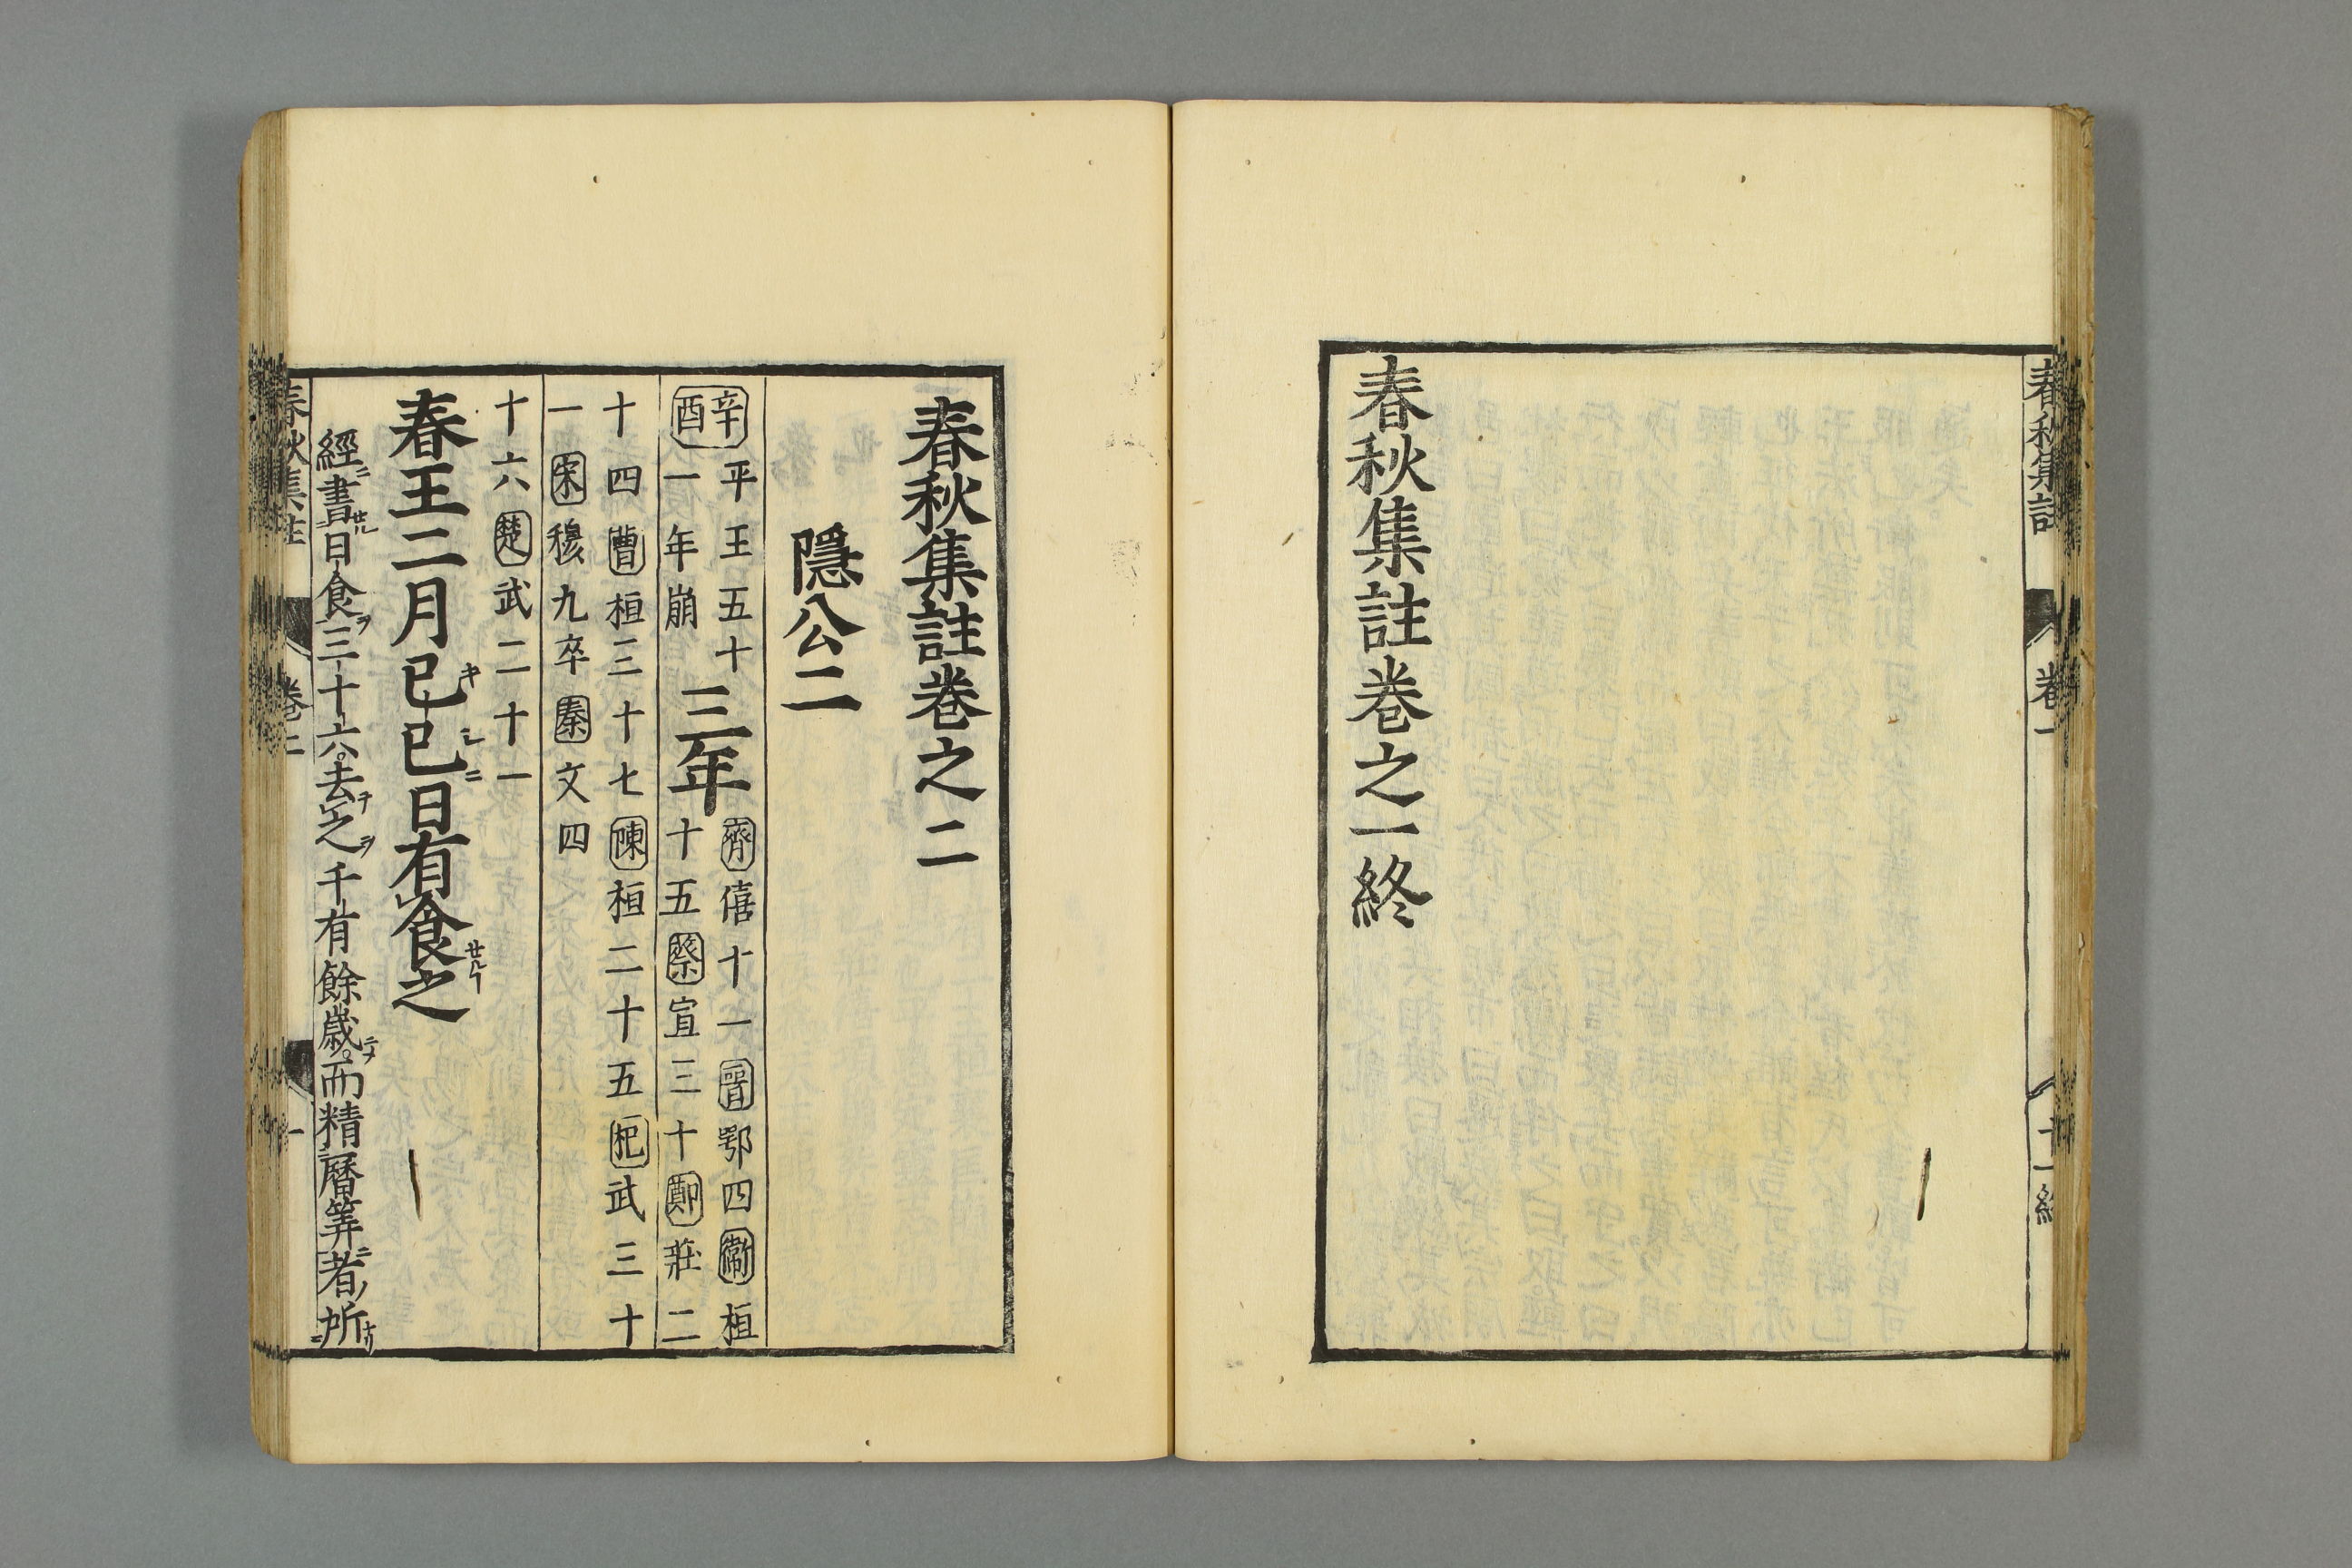 春秋集註 卷一 十一終
春秋集註卷之一終
春秋集註卷之二
隱公二
辛酉 平王五十一年崩 三年 齊僖十一晉鄂四衛桓十五蔡宣三十鄭莊二
十四曹桓三十七陳桓二十五杞武三十
一宋穆九卒秦文四
十六楚武二十一
春王二月己巳日有食之
經書日食三十六。去之千有餘歲。而精曆筭者所
春秋集註 卷二 一